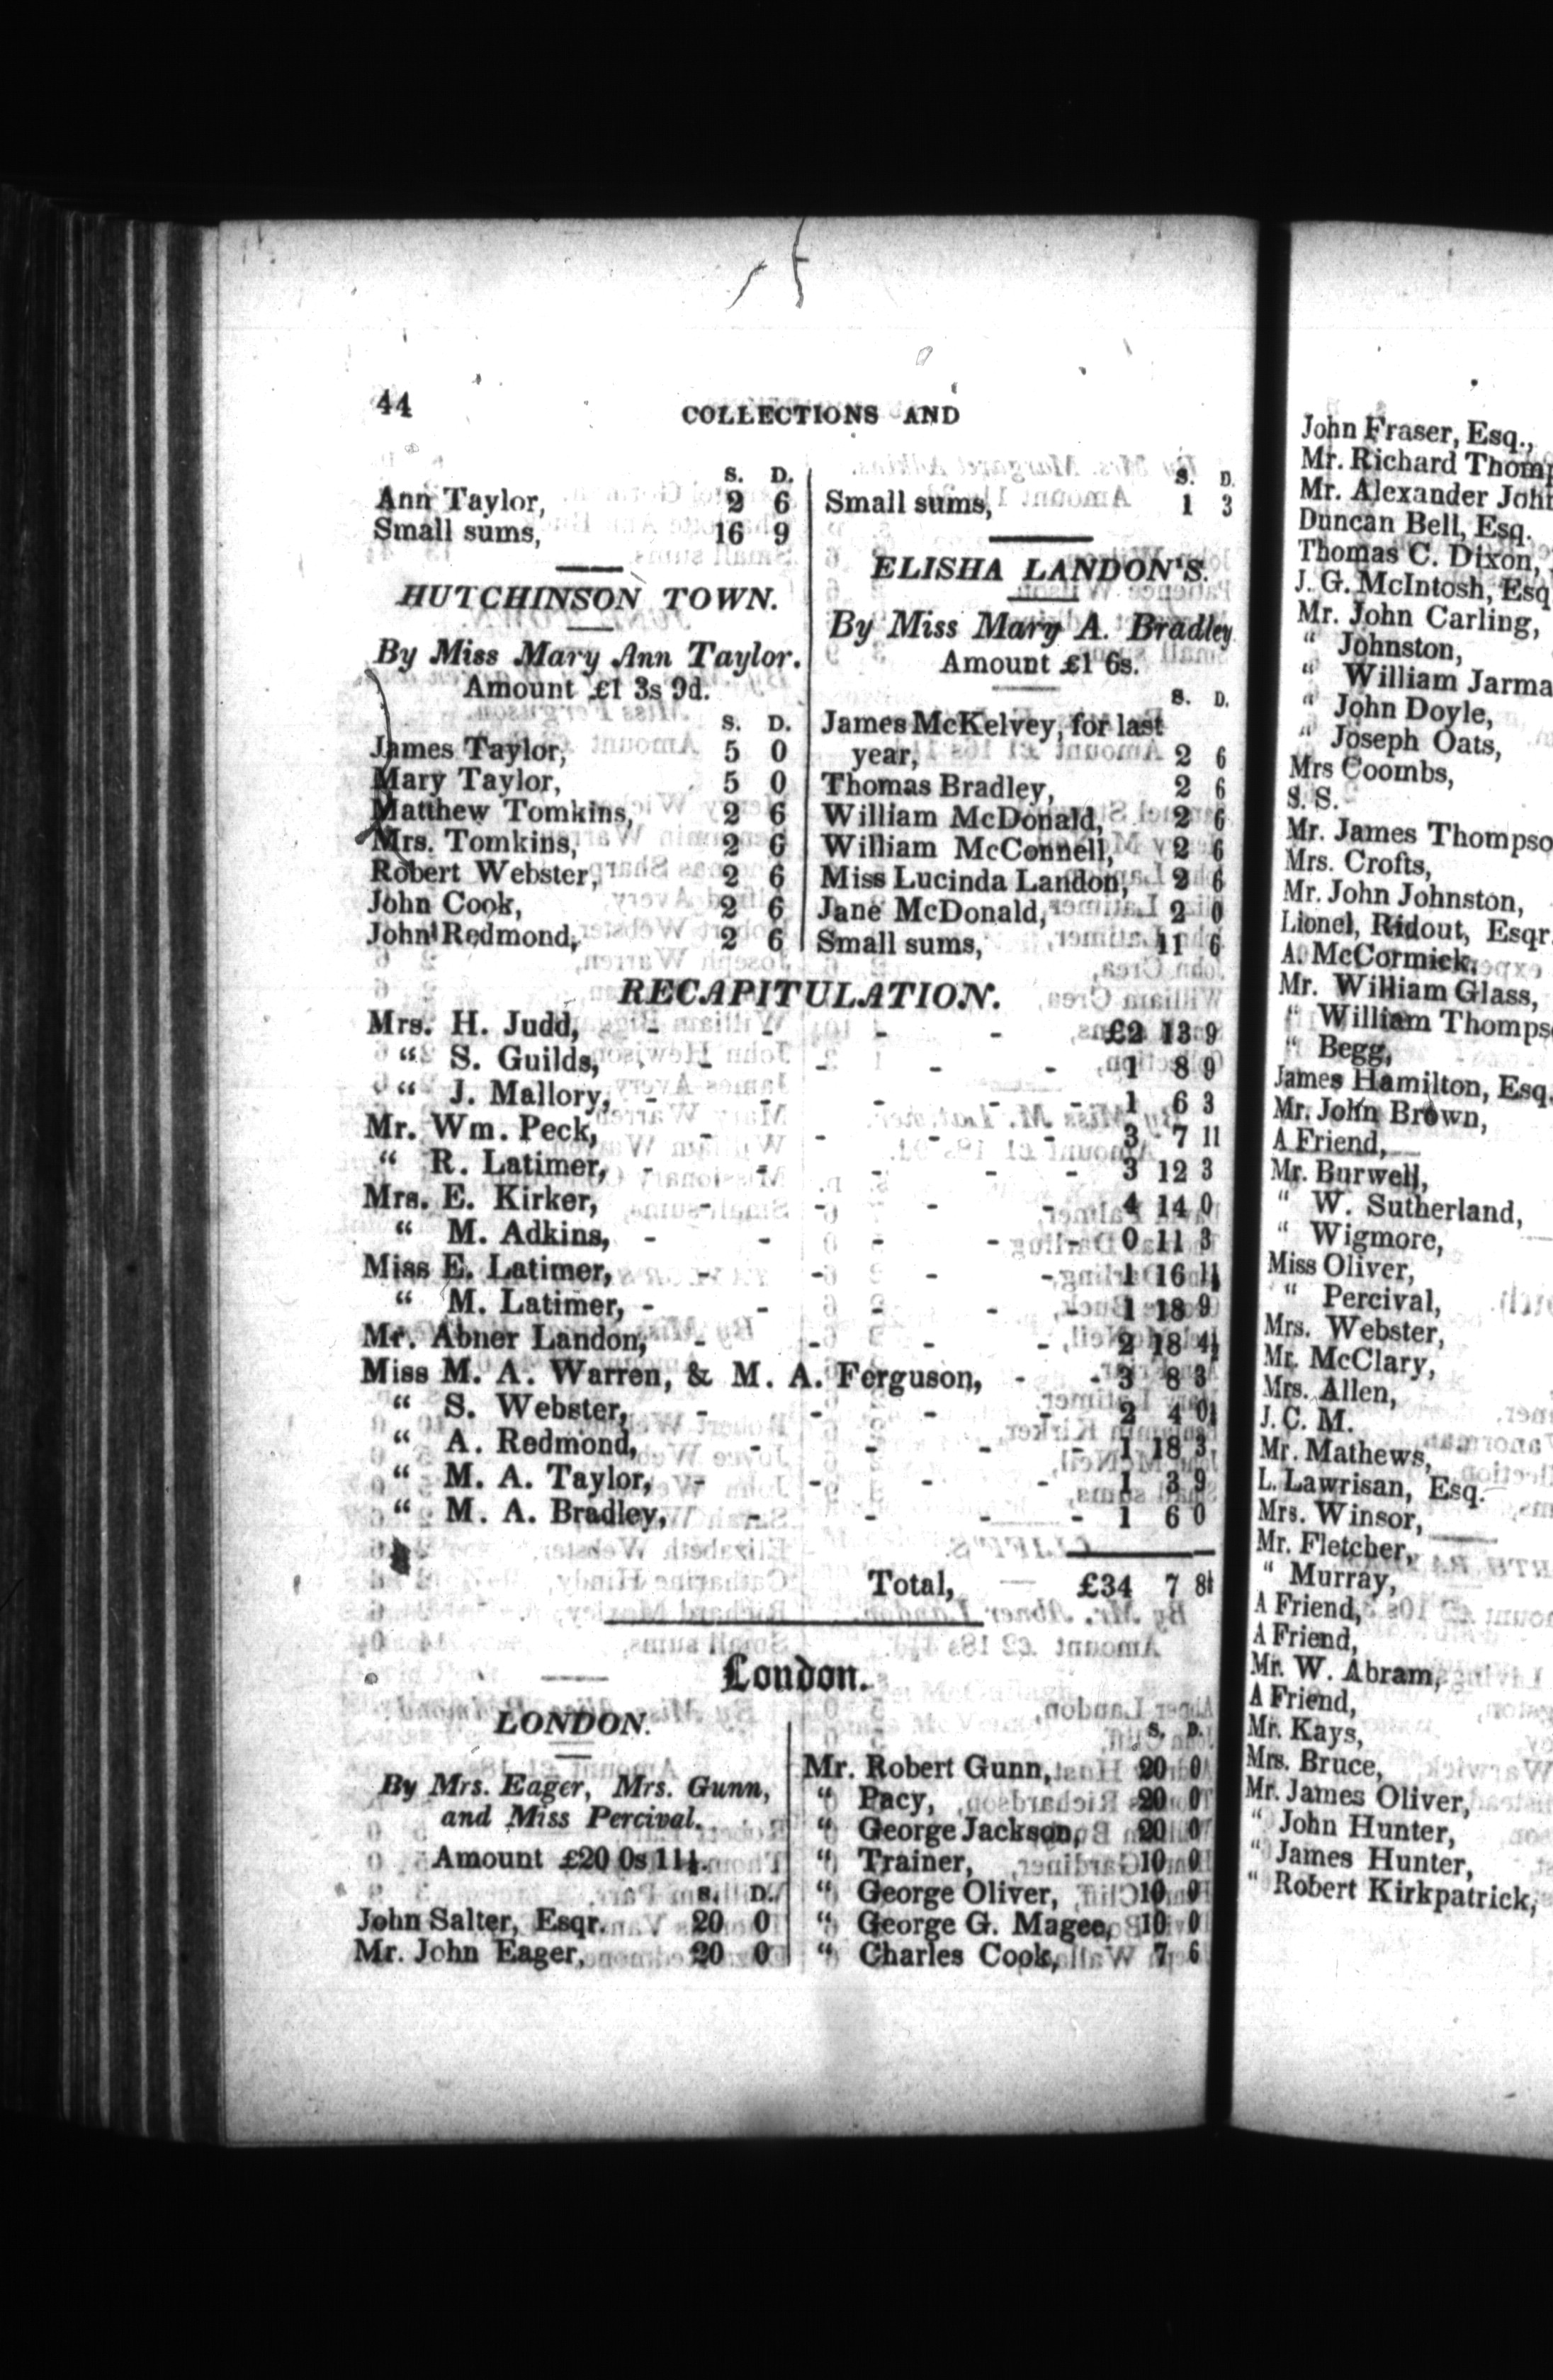 44
COLLECTIONS AND
S. D.
Ann Taylor, 2 6
Small sums, 16 9
HUTCHINSON TOWN.
By Miss Mary Ann Taylor.
Amount £1 3s 9d.
S. D.
James Taylor, 5 0
Mary Taylor, 5 0
Matthew Tomkins, 2 6
Mrs. Tomkins, 2 6
Robert Webster, 2 6
John Cook, 2 6
John Redmond, 2 6
S. D.
Small sums, 1 3
ELISHA LANDON'S.
By Miss Mary A. Bradley
Amount £1 6s.
S. D.
James McKelvey, for last
year, 2 6
Thomas Bradley, 2 6
William McDonald, 2 6
William McConnell, 2 6
Miss Lucinda Landon, 2 6
Jane McDonald, 2 0
Small sums, 11 6
RECAPITULATION.
Mrs. H. Judd, - - - - £2 13 9
" S. Guilds, - - - - 1 8 9
" J. Mallory, - - - - - 1 6 3
Mr. Wm. Peck, - - - - 3 7 11
" R. Latimer, - - - - - 3 12 3
Mrs. E. Kirker, - - - - 4 14 0
" M. Adkins, - - - - - 0 11 3
Miss E. Latimer, - - - - 1 16 1½
" M. Latimer, - - - - - 1 18 9
Mr. Abner Landon, - - - - 2 18 4½
Miss M. A. Warren, & M. A. Ferguson, - - 3 8 3
" S. Webster, - - - - 2 4 0½
" A. Redmond, - - - - 1 18 3
" M. A. Taylor, - - - - 1 3 9
" M. A. Bradley, - - - - 1 6 0
Total, — £34 7 8½
London.
LONDON.
By Mrs. Eager, Mrs. Gunn,
and Miss Percival.
Amount £20 0s 11½.
S. D.
John Salter, Esqr. 20 0
Mr. John Eager, 20 0
S. D.
Mr. Robert Gunn, 20 0
" Pacy, 20 0
" George Jackson, 20 0
" Trainer, 10 0
" George Oliver, 10 0
" George G. Magee, 10 0
" Charles Cook, 7 6
John Fraser, Esq.,
Mr. Richard Thomp
Mr. Alexander John
Duncan Bell, Esq.
Thomas C. Dixon,
J. G. McIntosh, Esq
Mr. John Carling,
" Johnston,
" William Jarma
" John Doyle,
" Joseph Oats,
Mrs Coombs,
S. S.
Mr. James Thompso
Mrs. Crofts,
Mr. John Johnston,
Lionel, Ridout, Esqr.
A. McCormick,
Mr. William Glass,
" William Thomps
" Begg,
James Hamilton, Esq.
Mr. John Brown,
A Friend,
Mr. Burwell,
" W. Sutherland,
" Wigmore,
Miss Oliver,
" Percival,
Mrs. Webster,
Mr. McClary,
Mrs. Allen,
J. C. M.
Mr. Mathews,
L. Lawrisan, Esq.
Mrs. Winsor,
Mr. Fletcher,
" Murray,
A Friend,
A Friend,
Mr. W. Abram,
A Friend,
Mr. Kays,
Mrs. Bruce,
Mr. James Oliver,
" John Hunter,
" James Hunter,
" Robert Kirkpatrick,